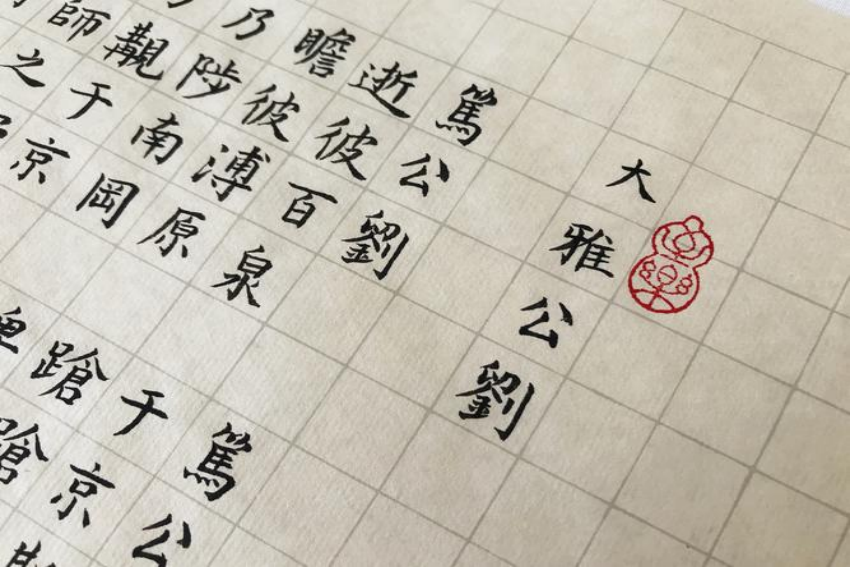 大雅公劉
篤公劉
逝彼百泉
瞻彼溥原
乃陟南岡
覯于京
師之
篤公
于京斯
蹌蹌